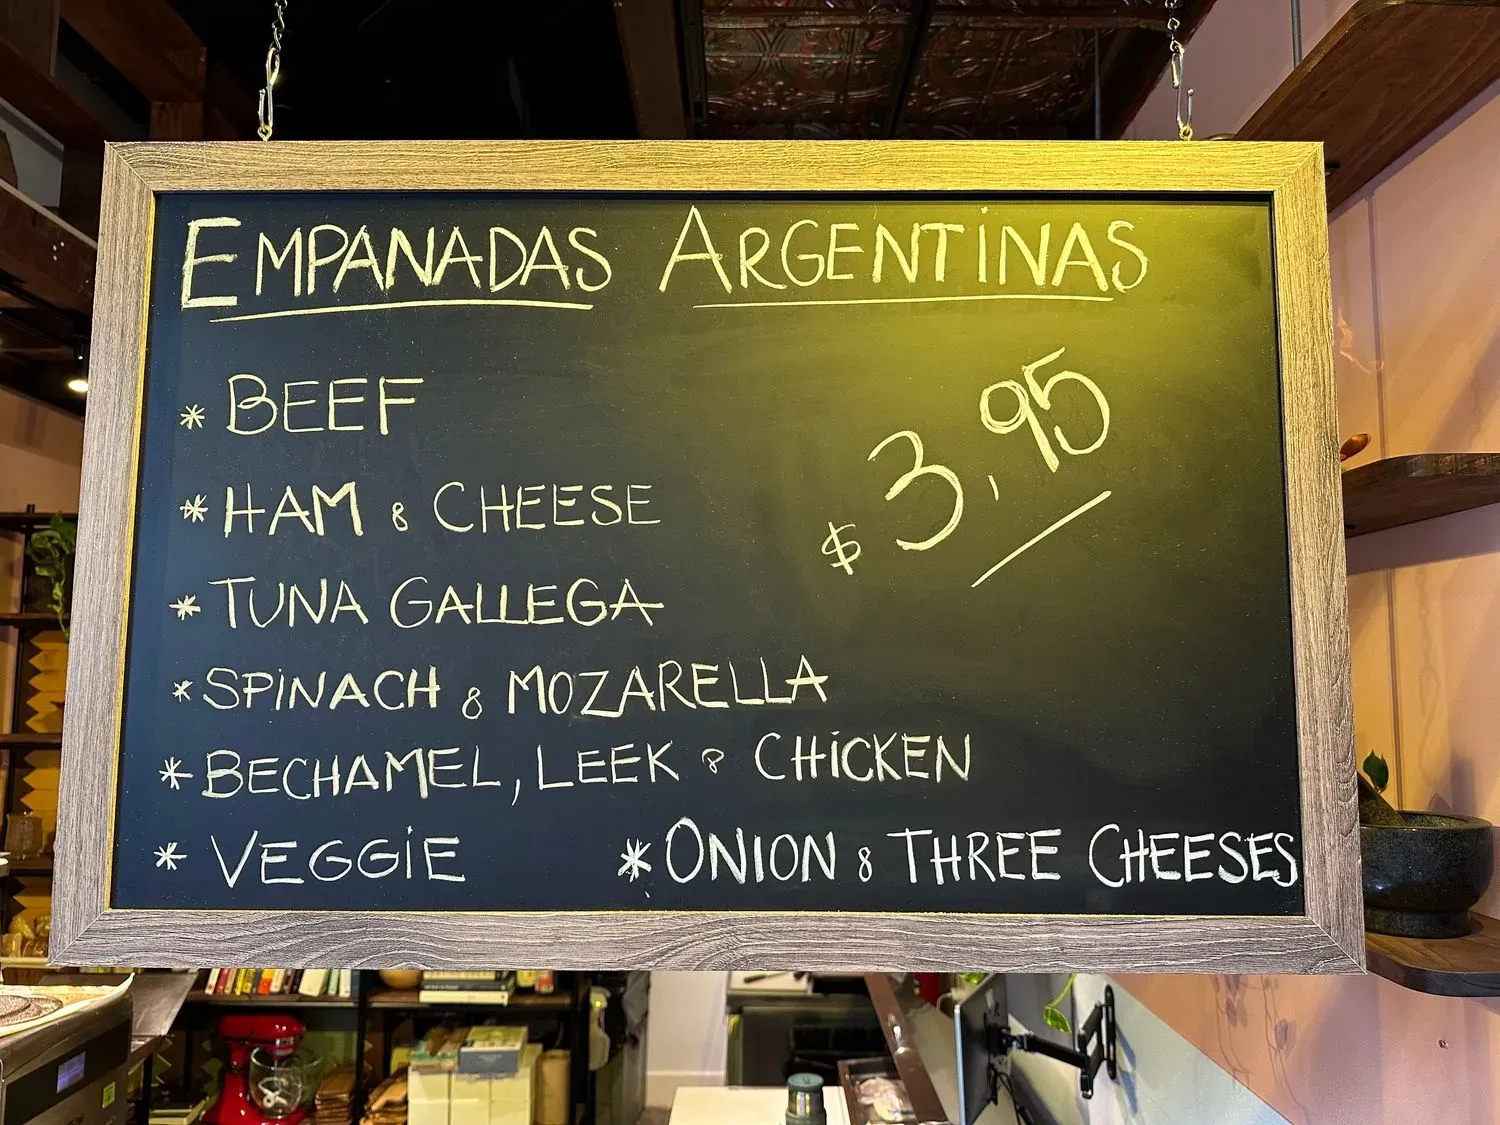 EMPANADAS ARGENTINAS
* BEEF
$3,95
* HAM & CHEESE
* TUNA GALLEGA
* SPINACH & MOZARELLA
* BECHAMEL, LEEK & CHICKEN
* VEGGIE * ONION & THREE CHEESES